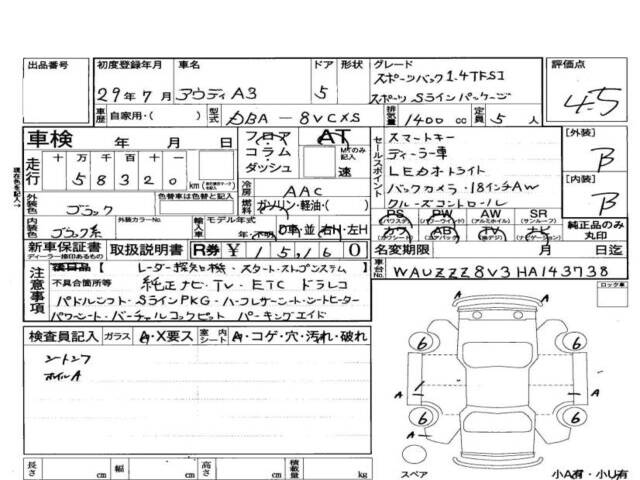 出品番号 初度登録年月 車名 ドア 形状 グレード 評価点
29年7月 アウディA3 5 スポーツバック1.4TFSI
スポーツ Sラインパッケージ 4.5
車歴 自家用・( ) 型式 DBA-8VCXS 排気量 1400cc 定員 5人
車検 年 月 日 フロア AT スマートキー [外装]
コラム MTのみ記入 ディーラー車 B
走行 十万 万 千 百 十 ダッシュ 速 セールスポイント LEDオートライト
58320 km 冷房 AAC バックカメラ・18インチAW [内装]
外装色 ブラック 色替車は色替と記入 燃料 ガソリン・軽油・( ) クルーズコントロール B
内装色 ブラック系 外装カラーNo. 輸入車 モデル年式 D車・並 右H・左H
PS PW AW SR
(パワステ) (パワーウインド) (アルミホイル) (サンルーフ)
カワ AB TV ナビ 純正品のみ丸印
新車保証書 取扱説明書 R券 ¥15,160 名変期限 月 日迄
ディーラー捺印あるもの
車台No. WAUZZZ8V3HA143738
注意事項 レーダー探知機・スタートストップシステム ロック車
不具合箇所等 純正ナビ・TV・ETC ドラレコ
パドルシフト・SラインPKG・ハーフレザーシート・シートヒーター
パワーシート・バーチャルコックピット パーキングエイド
検査員記入 ガラス A・X要ス 室内シート A・コゲ・穴・汚れ・破れ
ホイルA
6 6
A 1 A
6 6
A A
長さ cm 幅 cm 高さ cm 積載量 kg
スペア 小A有・小U有